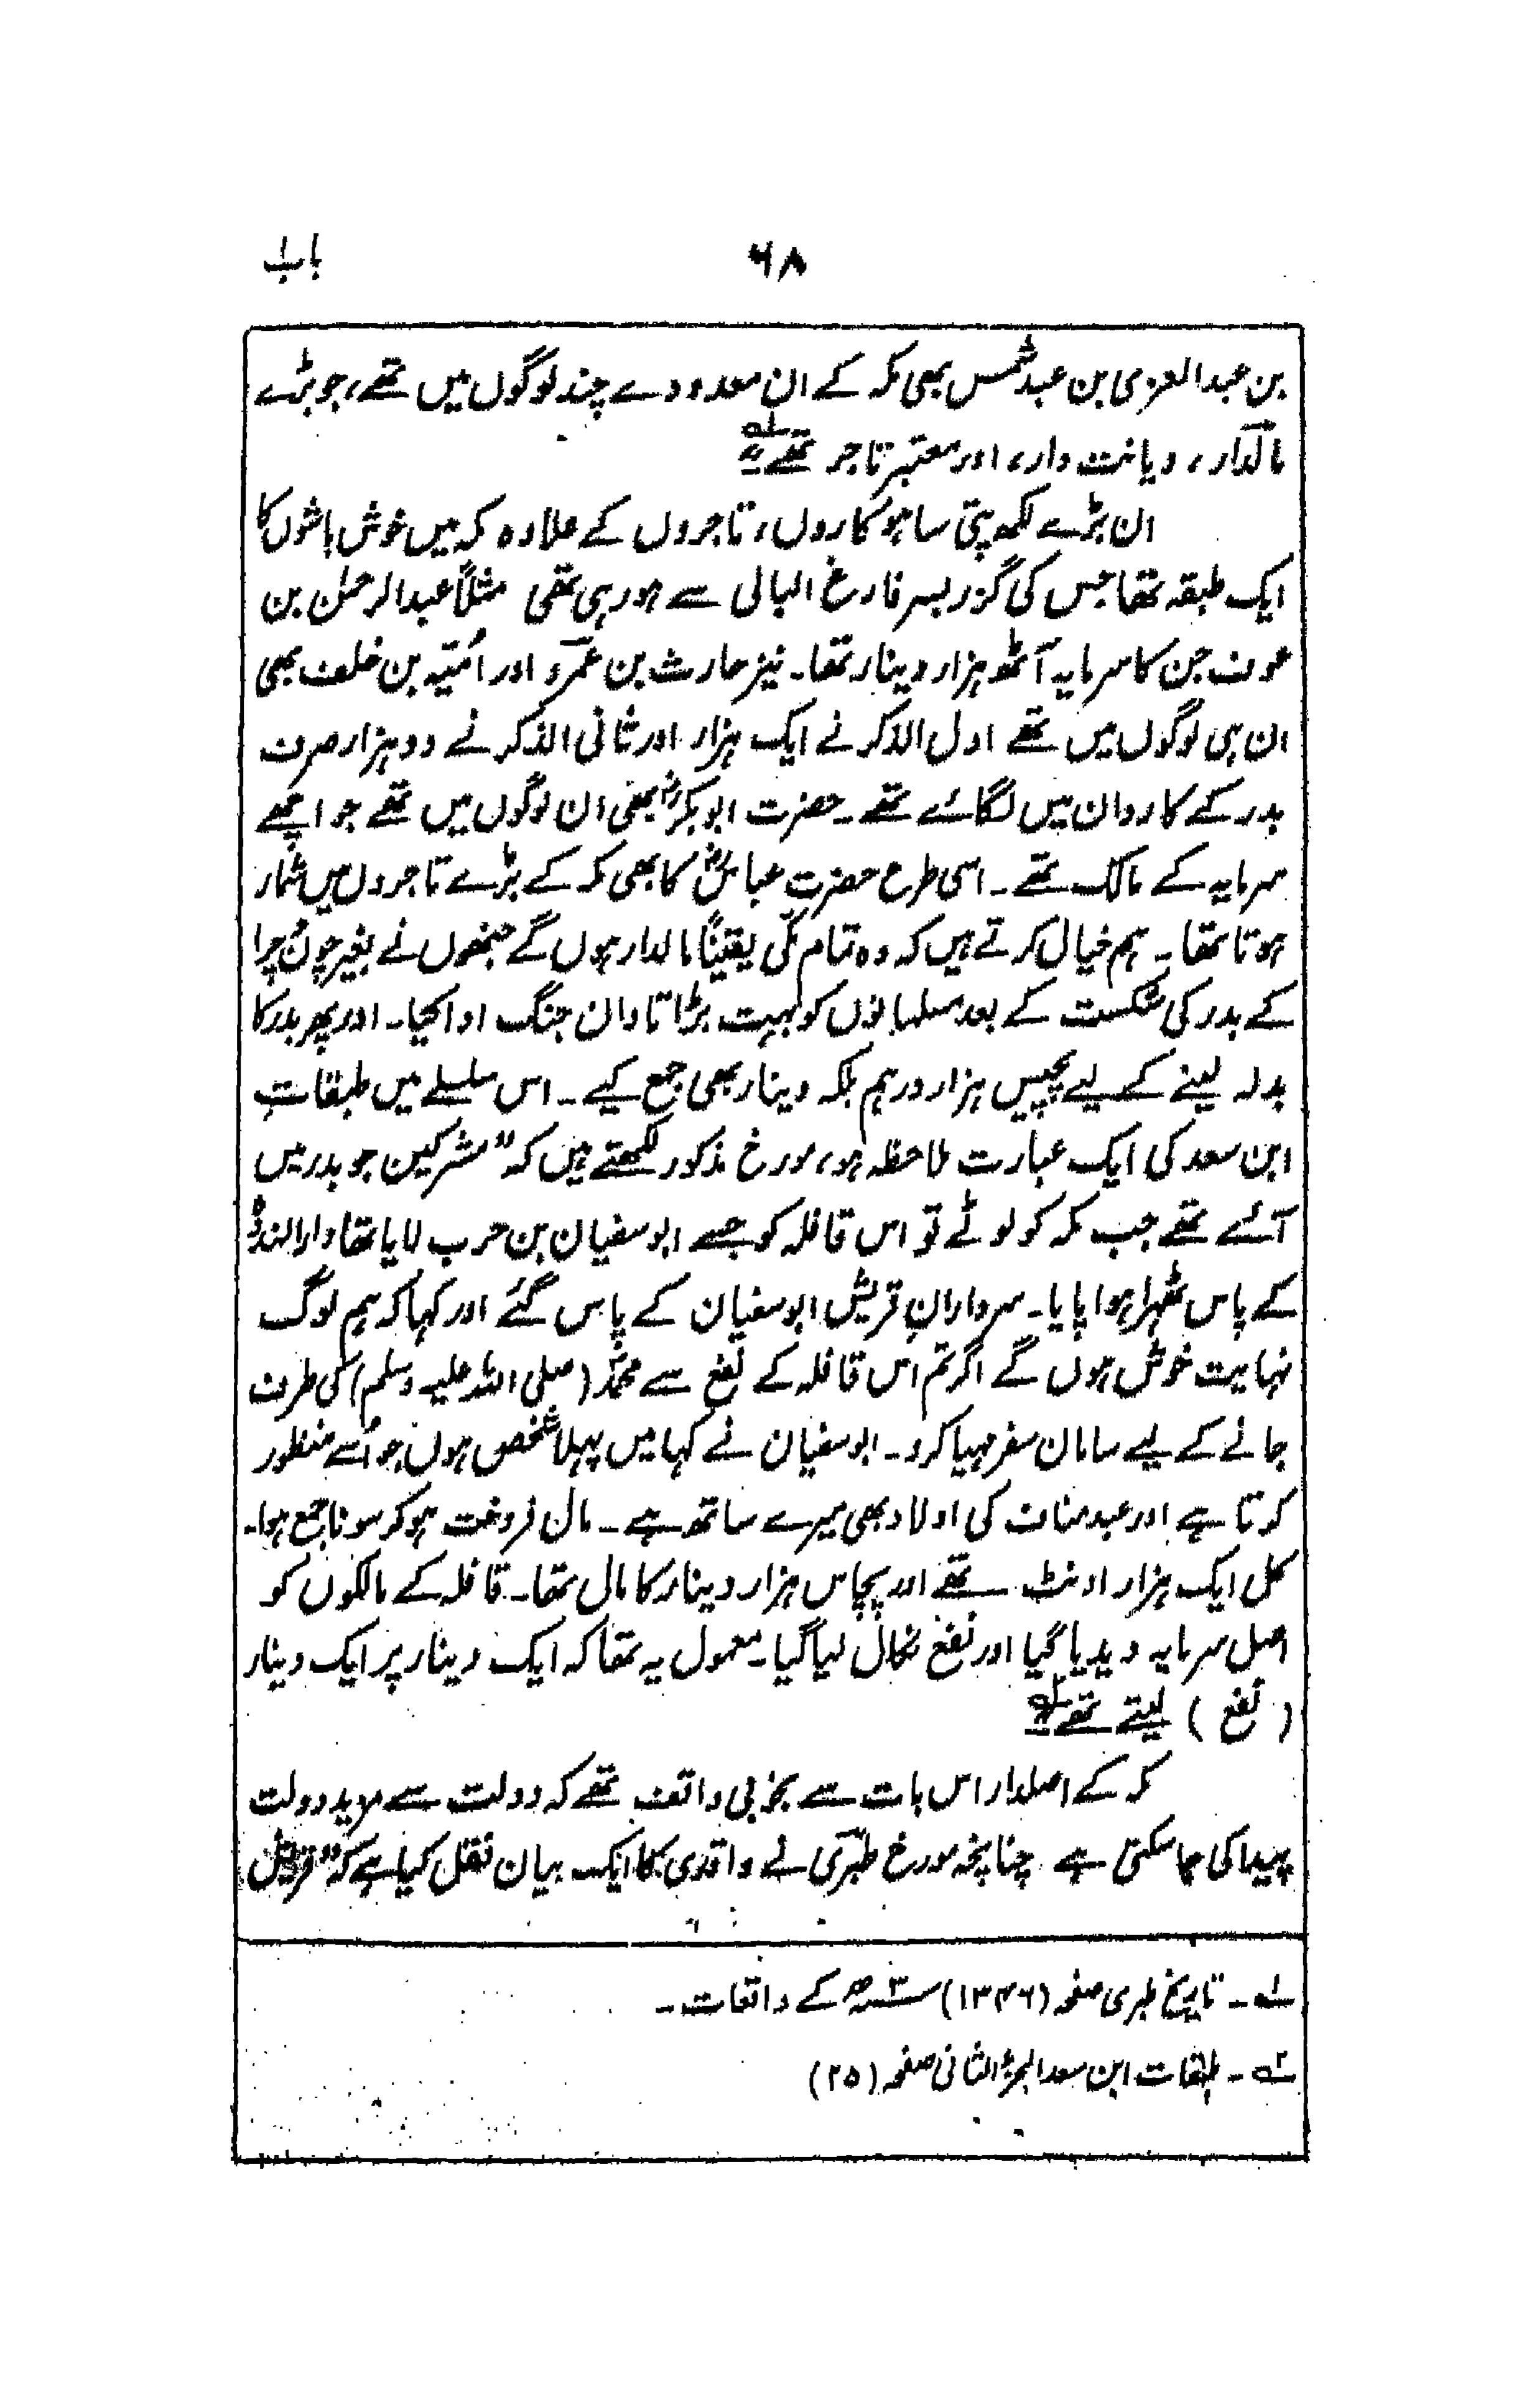 باب ۱
۶۸
بن عبد العزی بن عبد شمس بھی مکہ کے ان معدودے چند لوگوں میں تھے، جو بڑے
مالدار، دیانت دار، اور معتبر تاجر تھے ۱؎
ان بڑے لکھ پتی ساہوکاروں، تاجروں کے علاوہ مکہ میں خوش باشوں کا
ایک طبقہ تھا جس کی گزر بسر فارغ البالی سے ہو رہی تھی مثلاً عبدالرحمٰن بن
عوف جن کا سرمایہ آٹھ ہزار دینار تھا۔ نیز حارث بن عمرو اور اُمیّہ بن خلف بھی
ان ہی لوگوں میں تھے اول الذکر نے ایک ہزار اور ثانی الذکر نے دو ہزار صرف
بدر کے کاروان میں لگائے تھے۔ حضرت ابوبکرؓ بھی ان لوگوں میں تھے جو اچھے
سرمایہ کے مالک تھے۔ اسی طرح حضرت عباسؓ کا بھی مکہ کے بڑے تاجروں میں شمار
ہوتا تھا۔ ہم خیال کرتے ہیں کہ وہ تمام مکّی یقیناً مالدار ہوں گے جنھوں نے بغیر چون و چرا
کے بدر کی شکست کے بعد مسلمانوں کو بہت بڑا تاوان جنگ ادا کیا۔ اور پھر بدر کا
بدلہ لینے کے لیے پچیس ہزار درہم بلکہ دینار بھی جمع کیے۔ اس سلسلے میں طبقاتِ
ابن سعد کی ایک عبارت ملاحظہ ہو، مورخ مذکور لکھتے ہیں کہ "مشرکین جو بدر میں
آئے تھے جب مکہ کو لوٹے تو اس قافلہ کو جسے ابوسفیان بن حرب لایا تھا دارالندوہ
کے پاس ٹھہرا ہوا پایا۔ سردارانِ قریش ابوسفیان کے پاس گئے اور کہا کہ ہم لوگ
نہایت خوش ہوں گے اگر تم اس قافلہ کے نفع سے محمدؐ (صلی اللہ علیہ وسلم) کی طرف
جانے کے لیے سامان سفر مہیا کرو۔ ابوسفیان نے کہا میں پہلا شخص ہوں جو اُسے منظور
کرتا ہے اور عبد مناف کی اولاد بھی میرے ساتھ ہے۔ مال فروخت ہوکر سونا جمع ہوا۔
کل ایک ہزار اونٹ تھے اور پچاس ہزار دینار کا مال تھا۔ قافلہ کے مالکوں کو
اصل سرمایہ دیدیا گیا اور نفع نکال لیا گیا۔ معمول یہ تھا کہ ایک دینار پر ایک دینار
(نفع) لیتے تھے ۲؎
مکہ کے اصلدار اس بات سے بخوبی واقف تھے کہ دولت سے مزید دولت
پیدا کی جا سکتی ہے چنانچہ مورخ طبری نے واقدی کا ایک بیان نقل کیا ہے کہ "قریش
۱؎ ۔ تاریخ طبری صفحہ (۱۳۴۶) ۳ھ کے واقعات۔
۲؎ ۔ طبقات ابن سعد الجزء الثانی صفحہ (۲۵)